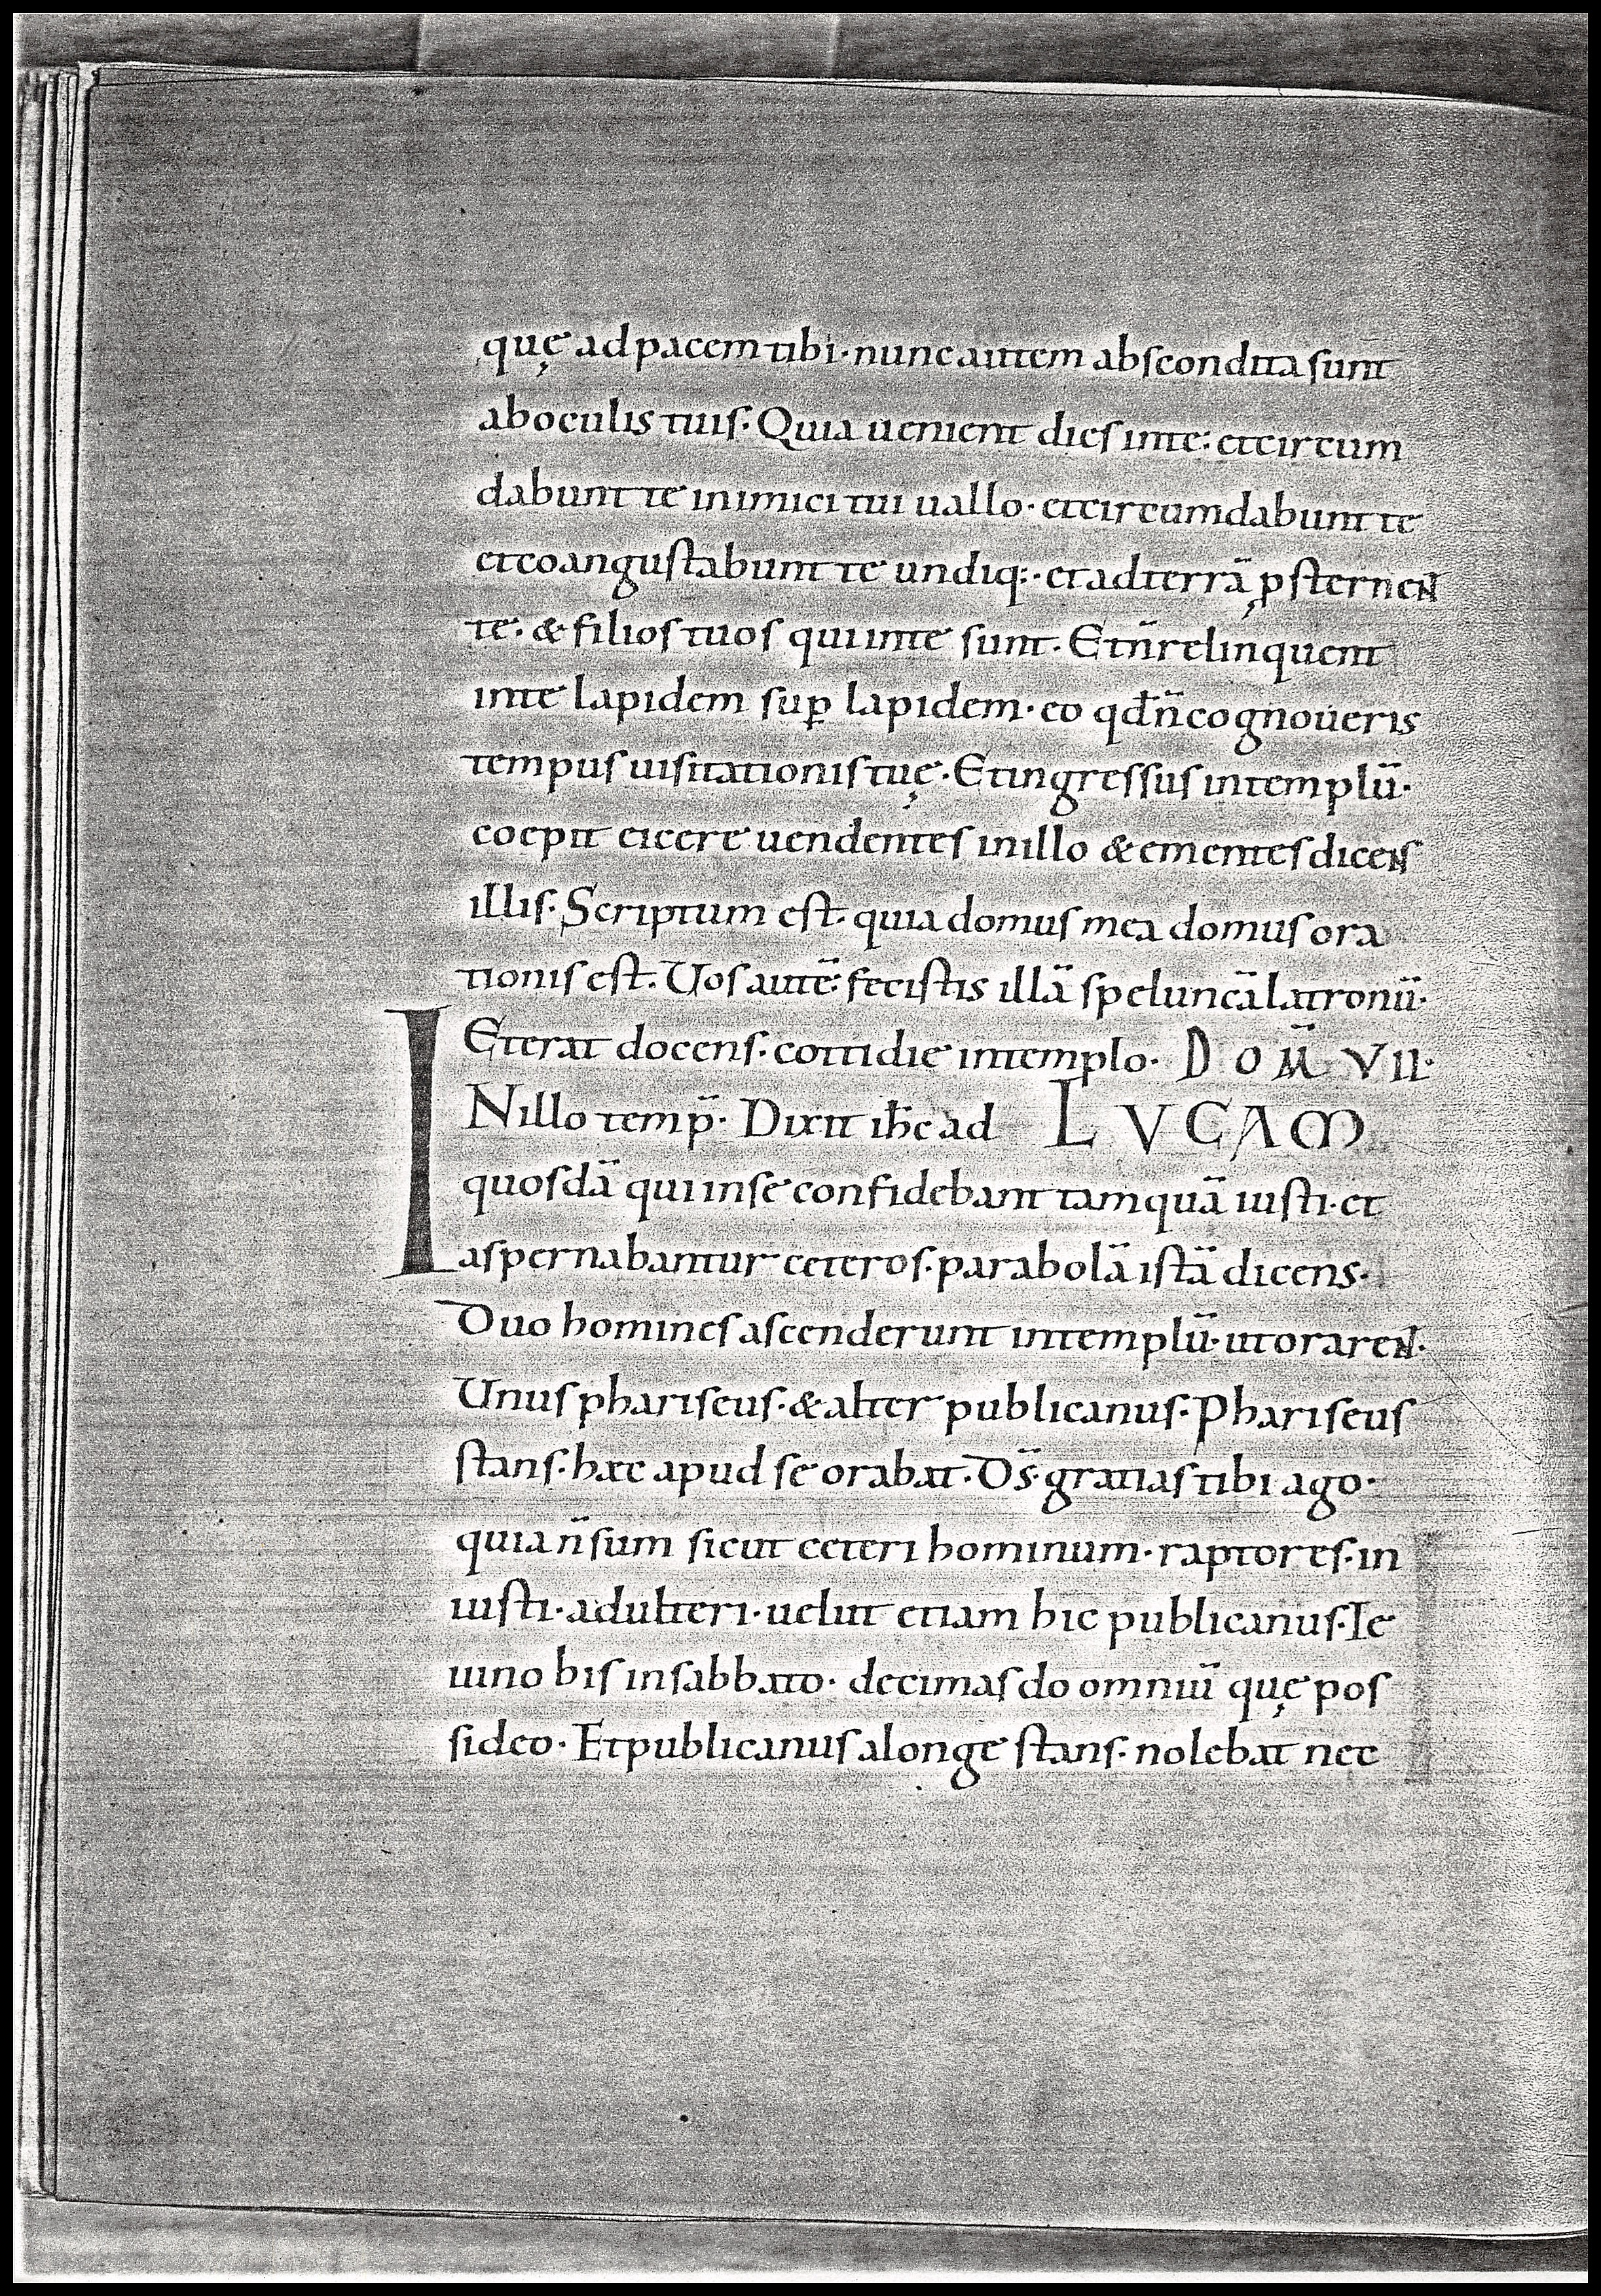 quę ad pacem tibi· nunc autem abscondita sunt
ab oculis tuis· Quia uenient dies in te· et circum
dabunt te inimici tui uallo· et circumdabunt te
et coangustabunt te undiq:· et ad terrā ꝓsterneN
te· & filios tuos qui in te sunt· Et n̄ relinquent
in te lapidem suꝑ lapidem· eo qd̄ n̄ cognoueris
tempus uisitationis tuę· Et ingressus in templū·
coepit eicere uendentes in illo & ementes diceNs
illis· Scriptum est· quia domus mea domus ora
tionis est· Uos autē· fecistis illā speluncā latronū·
Et erat docens· cottidie in templo· DOM̄ VII·
INillo temp̄· Dixit ih̄c ad LVCAM
quosdā qui in se confidebant tamquā iusti· et
aspernabantur ceteros· parabolā istā dicens·
Duo homines ascenderunt in templū· ut orareN·
Unus phariseus· & alter publicanus· Phariseus
stans· hæc apud se orabat· Ds̄ gratias tibi ago·
quia n̄ sum sicut ceteri hominum· raptores· in
iusti· adulteri· uelut etiam hic publicanus· Ie
iuno bis in sabbato· decimas do omniū quę pos
sideo· Et publicanus a longe stans· nolebat nec